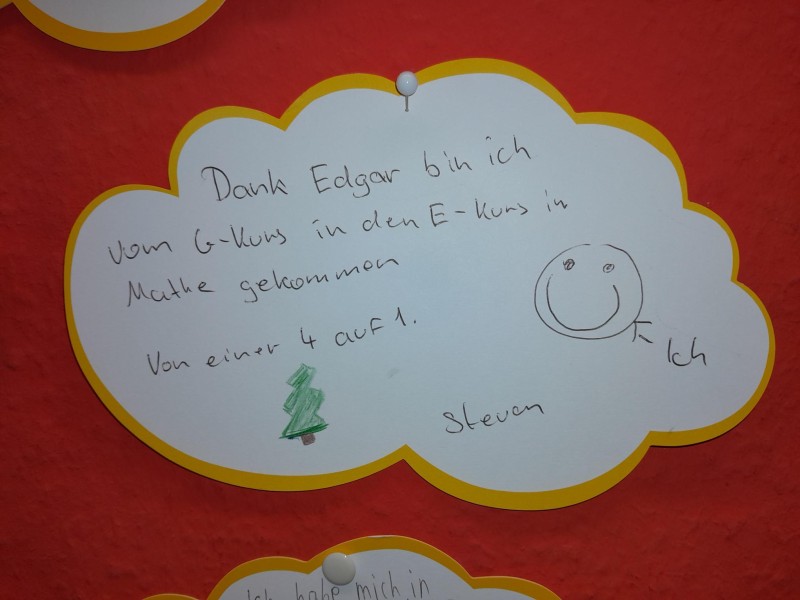 Dank Edgar bin ich
vom G-Kurs in den E-Kurs in
Mathe gekommen
Von einer 4 auf 1.
Ich
Steven
Ich habe mich in